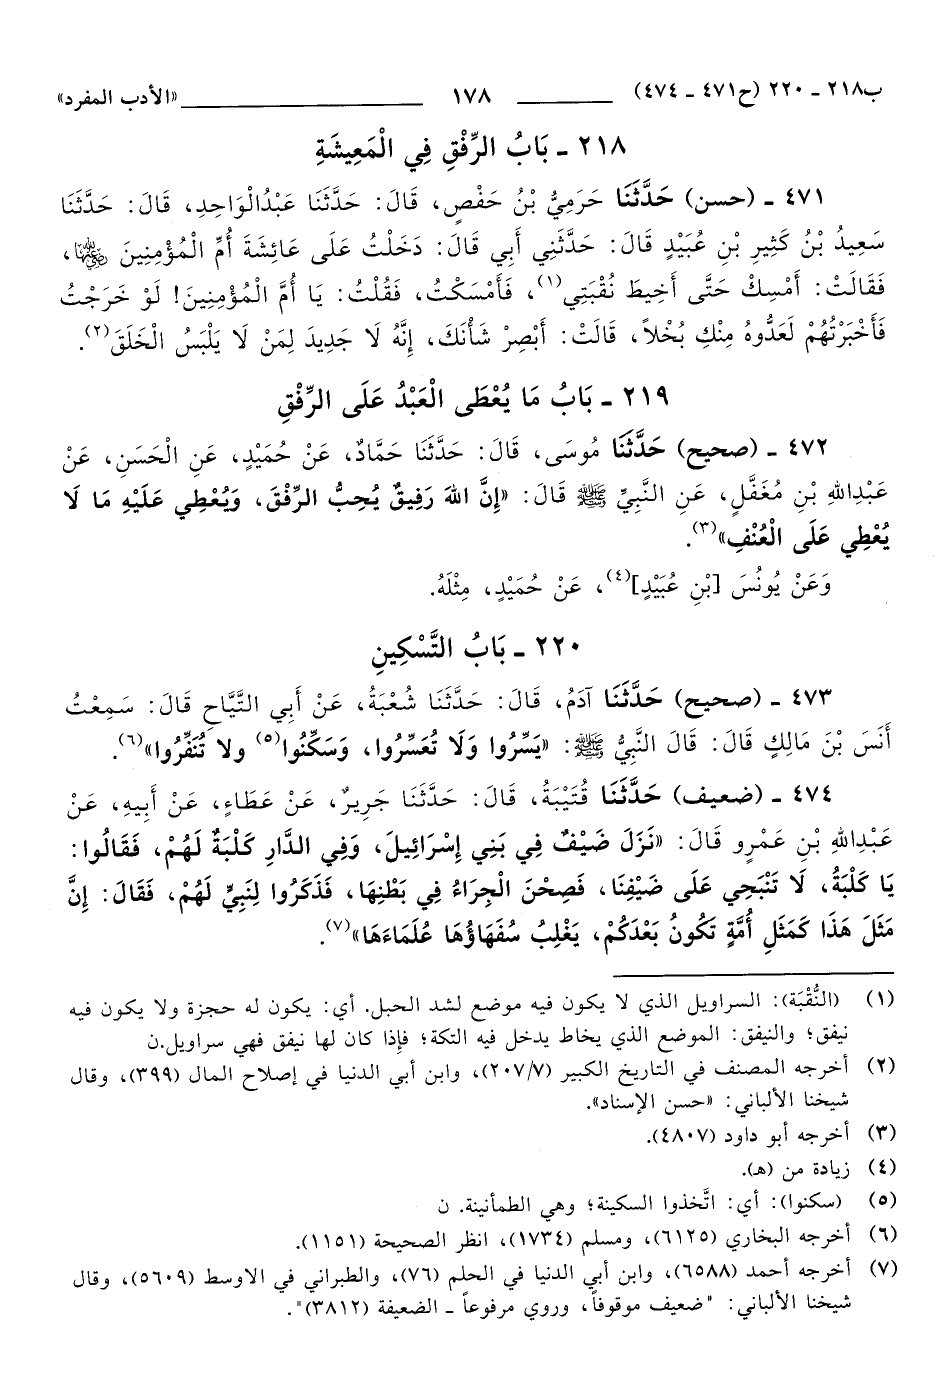 ب٢١٨ ـ ٢٢٠ (ح٤٧١ ـ ٤٧٤) ١٧٨ «الأدب المفرد»
٢١٨ ـ بَابُ الرِّفْقِ فِي الْمَعِيشَةِ
٤٧١ ـ (حسن) حَدَّثَنَا حَرَمِيُّ بْنُ حَفْصٍ، قَالَ: حَدَّثَنَا عَبْدُالْوَاحِدِ، قَالَ: حَدَّثَنَا
سَعِيدُ بْنُ كَثِيرِ بْنِ عُبَيْدٍ قَالَ: حَدَّثَنِي أَبِي قَالَ: دَخَلْتُ عَلَى عَائِشَةَ أُمِّ الْمُؤْمِنِينَ رضي الله عنها،
فَقَالَتْ: أَمْسِكْ حَتَّى أَخِيطَ نُقْبَتِي(١)، فَأَمْسَكْتُ، فَقُلْتُ: يَا أُمَّ الْمُؤْمِنِينَ! لَوْ خَرَجْتُ
فَأَخْبَرْتُهُمْ لَعَدُّوهُ مِنْكِ بُخْلاً، قَالَتْ: أَبْصِرْ شَأْنَكَ، إِنَّهُ لَا جَدِيدَ لِمَنْ لَا يَلْبَسُ الْخَلَقَ(٢).
٢١٩ ـ بَابُ مَا يُعْطَى الْعَبْدُ عَلَى الرِّفْقِ
٤٧٢ ـ (صحيح) حَدَّثَنَا مُوسَى، قَالَ: حَدَّثَنَا حَمَّادٌ، عَنْ حُمَيْدٍ، عَنِ الْحَسَنِ، عَنْ
عَبْدِاللهِ بْنِ مُغَفَّلٍ، عَنِ النَّبِيِّ ﷺ قَالَ: «إِنَّ اللهَ رَفِيقٌ يُحِبُّ الرِّفْقَ، وَيُعْطِي عَلَيْهِ مَا لَا
يُعْطِي عَلَى الْعُنْفِ»(٣).
وَعَنْ يُونُسَ [بْنِ عُبَيْدٍ](٤)، عَنْ حُمَيْدٍ، مِثْلَهُ.
٢٢٠ ـ بَابُ التَّسْكِينِ
٤٧٣ ـ (صحيح) حَدَّثَنَا آدَمُ، قَالَ: حَدَّثَنَا شُعْبَةُ، عَنْ أَبِي التَّيَّاحِ قَالَ: سَمِعْتُ
أَنَسَ بْنَ مَالِكٍ قَالَ: قَالَ النَّبِيُّ ﷺ: «يَسِّرُوا وَلَا تُعَسِّرُوا، وَسَكِّنُوا(٥) ولا تُنَفِّرُوا»(٦).
٤٧٤ ـ (ضعيف) حَدَّثَنَا قُتَيْبَةُ، قَالَ: حَدَّثَنَا جَرِيرٌ، عَنْ عَطَاءٍ، عَنْ أَبِيهِ، عَنْ
عَبْدِاللهِ بْنِ عَمْرٍو قَالَ: «نَزَلَ ضَيْفٌ فِي بَنِي إِسْرَائِيلَ، وَفِي الدَّارِ كَلْبَةٌ لَهُمْ، فَقَالُوا:
يَا كَلْبَةُ، لَا تَنْبَحِي عَلَى ضَيْفِنَا، فَصِحْنَ الْجِرَاءُ فِي بَطْنِهَا، فَذَكَرُوا لِنَبِيٍّ لَهُمْ، فَقَالَ: إِنَّ
مَثَلَ هَذَا كَمَثَلِ أُمَّةٍ تَكُونُ بَعْدَكُمْ، يَغْلِبُ سُفَهَاؤُهَا عُلَمَاءَهَا»(٧).
(١) (النُّقْبَة): السراويل الذي لا يكون فيه موضع لشد الحبل. أي: يكون له حجزة ولا يكون فيه
نيفق؛ والنيفق: الموضع الذي يخاط يدخل فيه التكة؛ فإذا كان لها نيفق فهي سراويل.ن
(٢) أخرجه المصنف في التاريخ الكبير (٢٠٧/٧)، وابن أبي الدنيا في إصلاح المال (٣٩٩)، وقال
شيخنا الألباني: «حسن الإسناد».
(٣) أخرجه أبو داود (٤٨٠٧).
(٤) زيادة من (هـ).
(٥) (سكنوا): أي: اتَّخذوا السكينة؛ وهي الطمأنينة. ن
(٦) أخرجه البخاري (٦١٢٥)، ومسلم (١٧٣٤)، انظر الصحيحة (١١٥١).
(٧) أخرجه أحمد (٦٥٨٨)، وابن أبي الدنيا في الحلم (٧٦)، والطبراني في الاوسط (٥٦٠٩)، وقال
شيخنا الألباني: "ضعيف موقوفاً، وروي مرفوعاً ـ الضعيفة (٣٨١٢)".